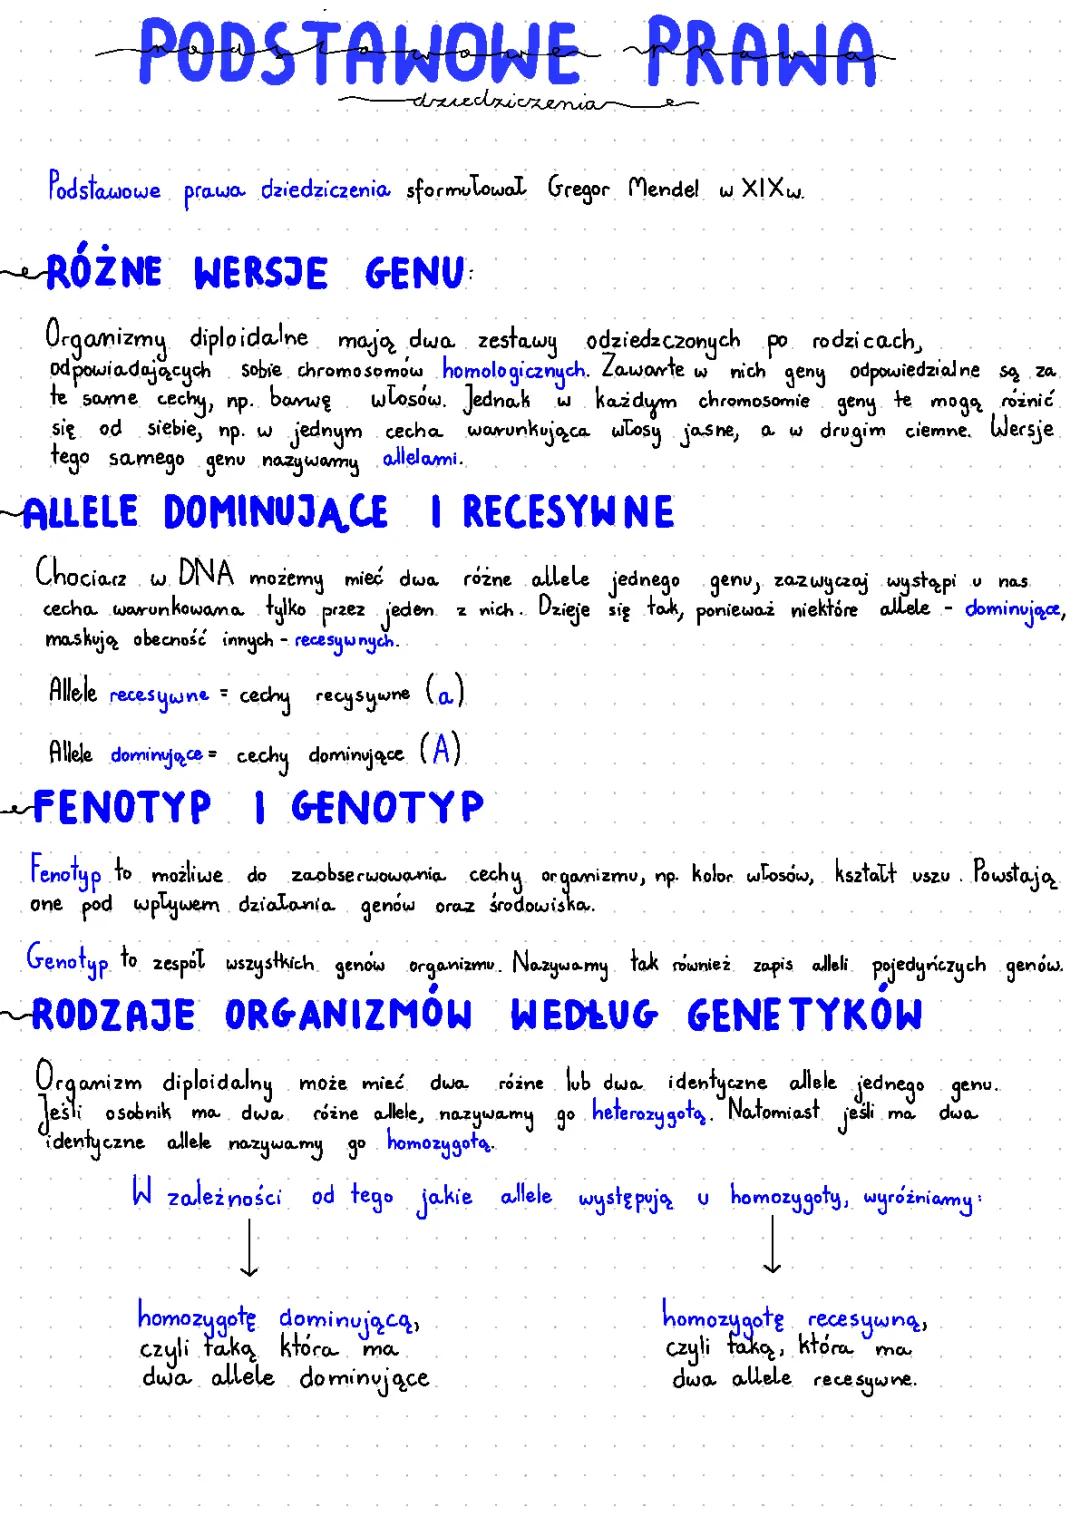 PODSTAWOWE PRAWA
podstawowe prawa
dziedziczenia
Podstawowe prawa dziedziczenia sformułował Gregor Mendel w XIXw.
RÓŻNE WERSJE GENU:
Organizmy diploidalne mają dwa zestawy odziedzczonych po rodzicach,
odpowiadających sobie chromosomów homologicznych. Zawarte w nich geny odpowiedzialne są za
te same cechy, np. barwę włosów. Jednak w każdym chromosomie geny te mogą różnić
się od siebie, np. w jednym cecha warunkująca włosy jasne, a w drugim ciemne. Wersje
tego samego genu nazywamy allelami.
ALLELE DOMINUJĄCE I RECESYWNE
Chociarz w DNA możemy mieć dwa różne allele jednego genu, zazwyczaj wystąpi u nas
cecha warunkowana tylko przez jeden z nich. Dzieje się tak, ponieważ niektóre allele - dominujące,
maskują obecność innych - recesywnych.
Allele recesywne = cechy recysywne (a)
Allele dominujące = cechy dominujące (A)
FENOTYP I GENOTYP
Fenotyp to możliwe do zaobserwowania cechy organizmu, np. kolor włosów, kształt uszu. Powstają
one pod wpływem działania genów oraz środowiska.
Genotyp to zespół wszystkich genów organizmu. Nazywamy tak również zapis alleli pojedyńczych genów.
RODZAJE ORGANIZMÓW WEDŁUG GENETYKÓW
Organizm diploidalny może mieć dwa różne lub dwa identyczne allele jednego genu.
Jeśli osobnik ma dwa różne allele, nazywamy go heterozygotą. Natomiast jeśli ma dwa
identyczne allele nazywamy go homozygotą.
W zależności od tego jakie allele występują u homozygoty, wyróżniamy:
homozygotę dominującą,
czyli taką która ma
dwa allele dominujące
homozygotę recesywną,
czyli taką, która ma
dwa allele recesywne.